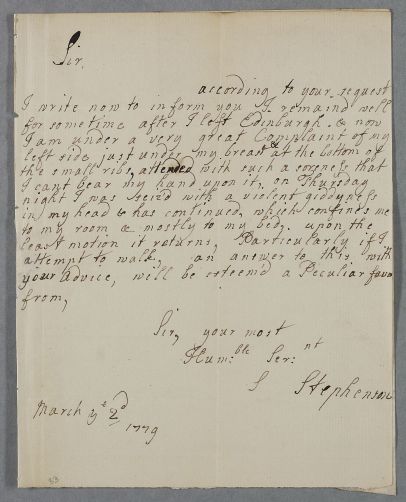 Sir,
according to your request
I write now to inform you I remaind well
for sometime after I left Edinburgh. & now
I am under a very great Complaint of my
left side just under my breast & at the bottom of
the small ribs, attended with such a soreness that
I cant bear my hand upon it, on Thursday
night I was seizd with a violent giddyness
in my head & has continued, which confines me
to my room & mostly to my bed. upon the
least motion it returns, Particularly if I
attempt to walk, an answer to this with
your advice, will be esteemd a Peculiar favo
from,
Sir, your most
Hum:ble Ser:nt
S Stephenson
March ye 2d
1779